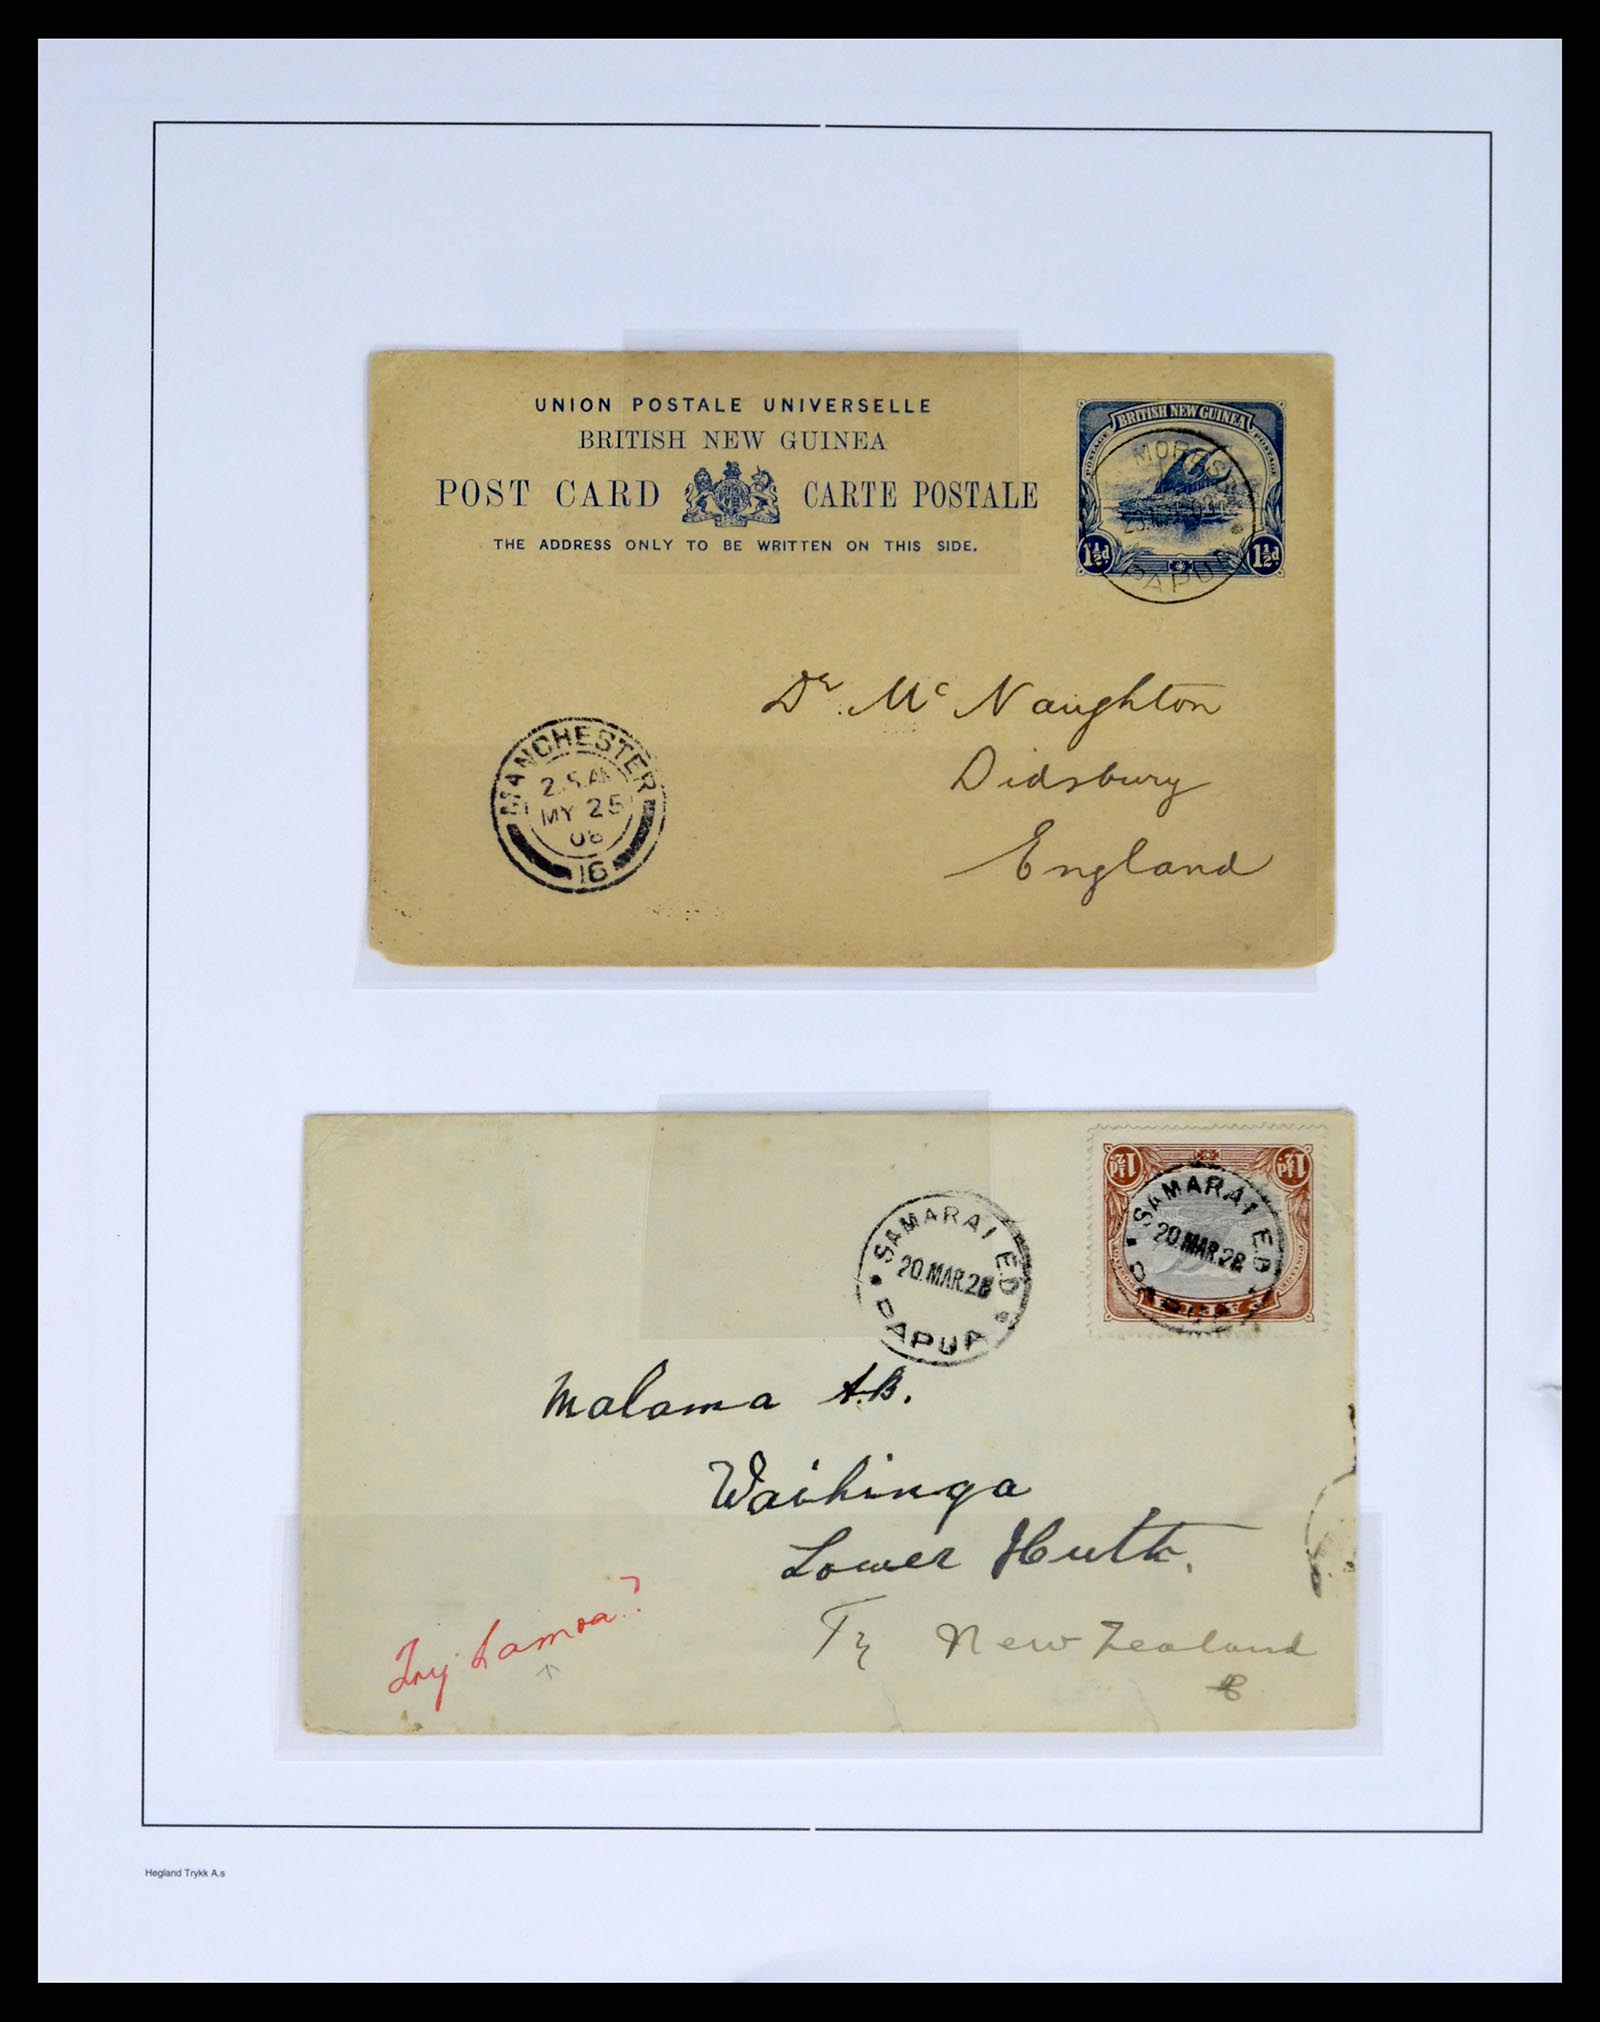 UNION POSTALE UNIVERSELLE
BRITISH NEW GUINEA
POST CARD CARTE POSTALE
THE ADDRESS ONLY TO BE WRITTEN ON THIS SIDE.
BRITISH NEW GUINEA
POSTAGE POSTAGE
1½d 1½d
MORESBY
PAPUA
Dr. Mc Naughton
Didsbury
England
MANCHESTER
MY 25
06
16
SAMARAI E.D
20.MAR.28
PAPUA
1½d 1½d
PAPUA
SAMARAI E.D
20.MAR.28
Malama A.B.
Waihinga
Lower Hutt.
Try Samoa?
Try New Zealand
Hegland Trykk A.s